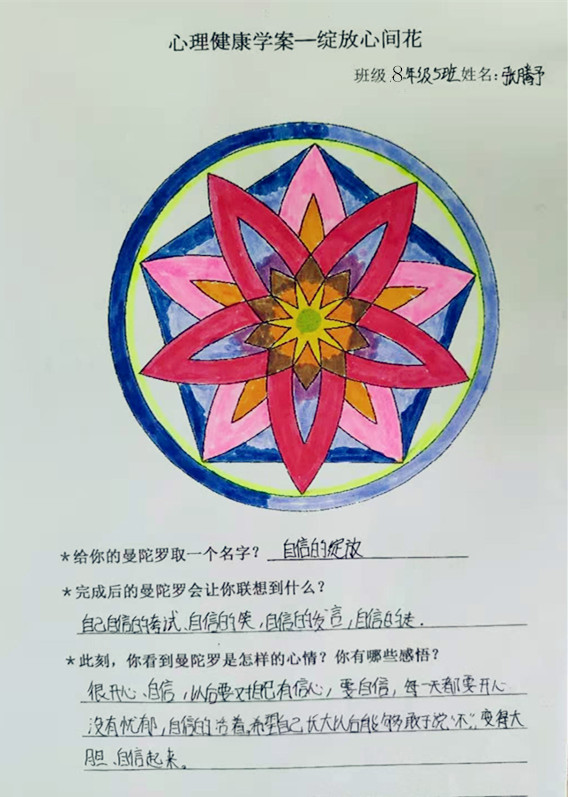 心理健康学案—绽放心间花
班级:8年级5班姓名:张腾予
*给你的曼陀罗取一个名字? 自信的绽放
*完成后的曼陀罗会让你联想到什么?
自己自信的考试、自信的笑,自信的发言,自信的走.
*此刻,你看到曼陀罗是怎样的心情?你有哪些感悟?
很开心、自信,以后要对自己有信心,要自信,每一天都要开心
没有忧郁,自信的活着。希望自己长大以后能够敢于说“不”,变得大
胆、自信起来。